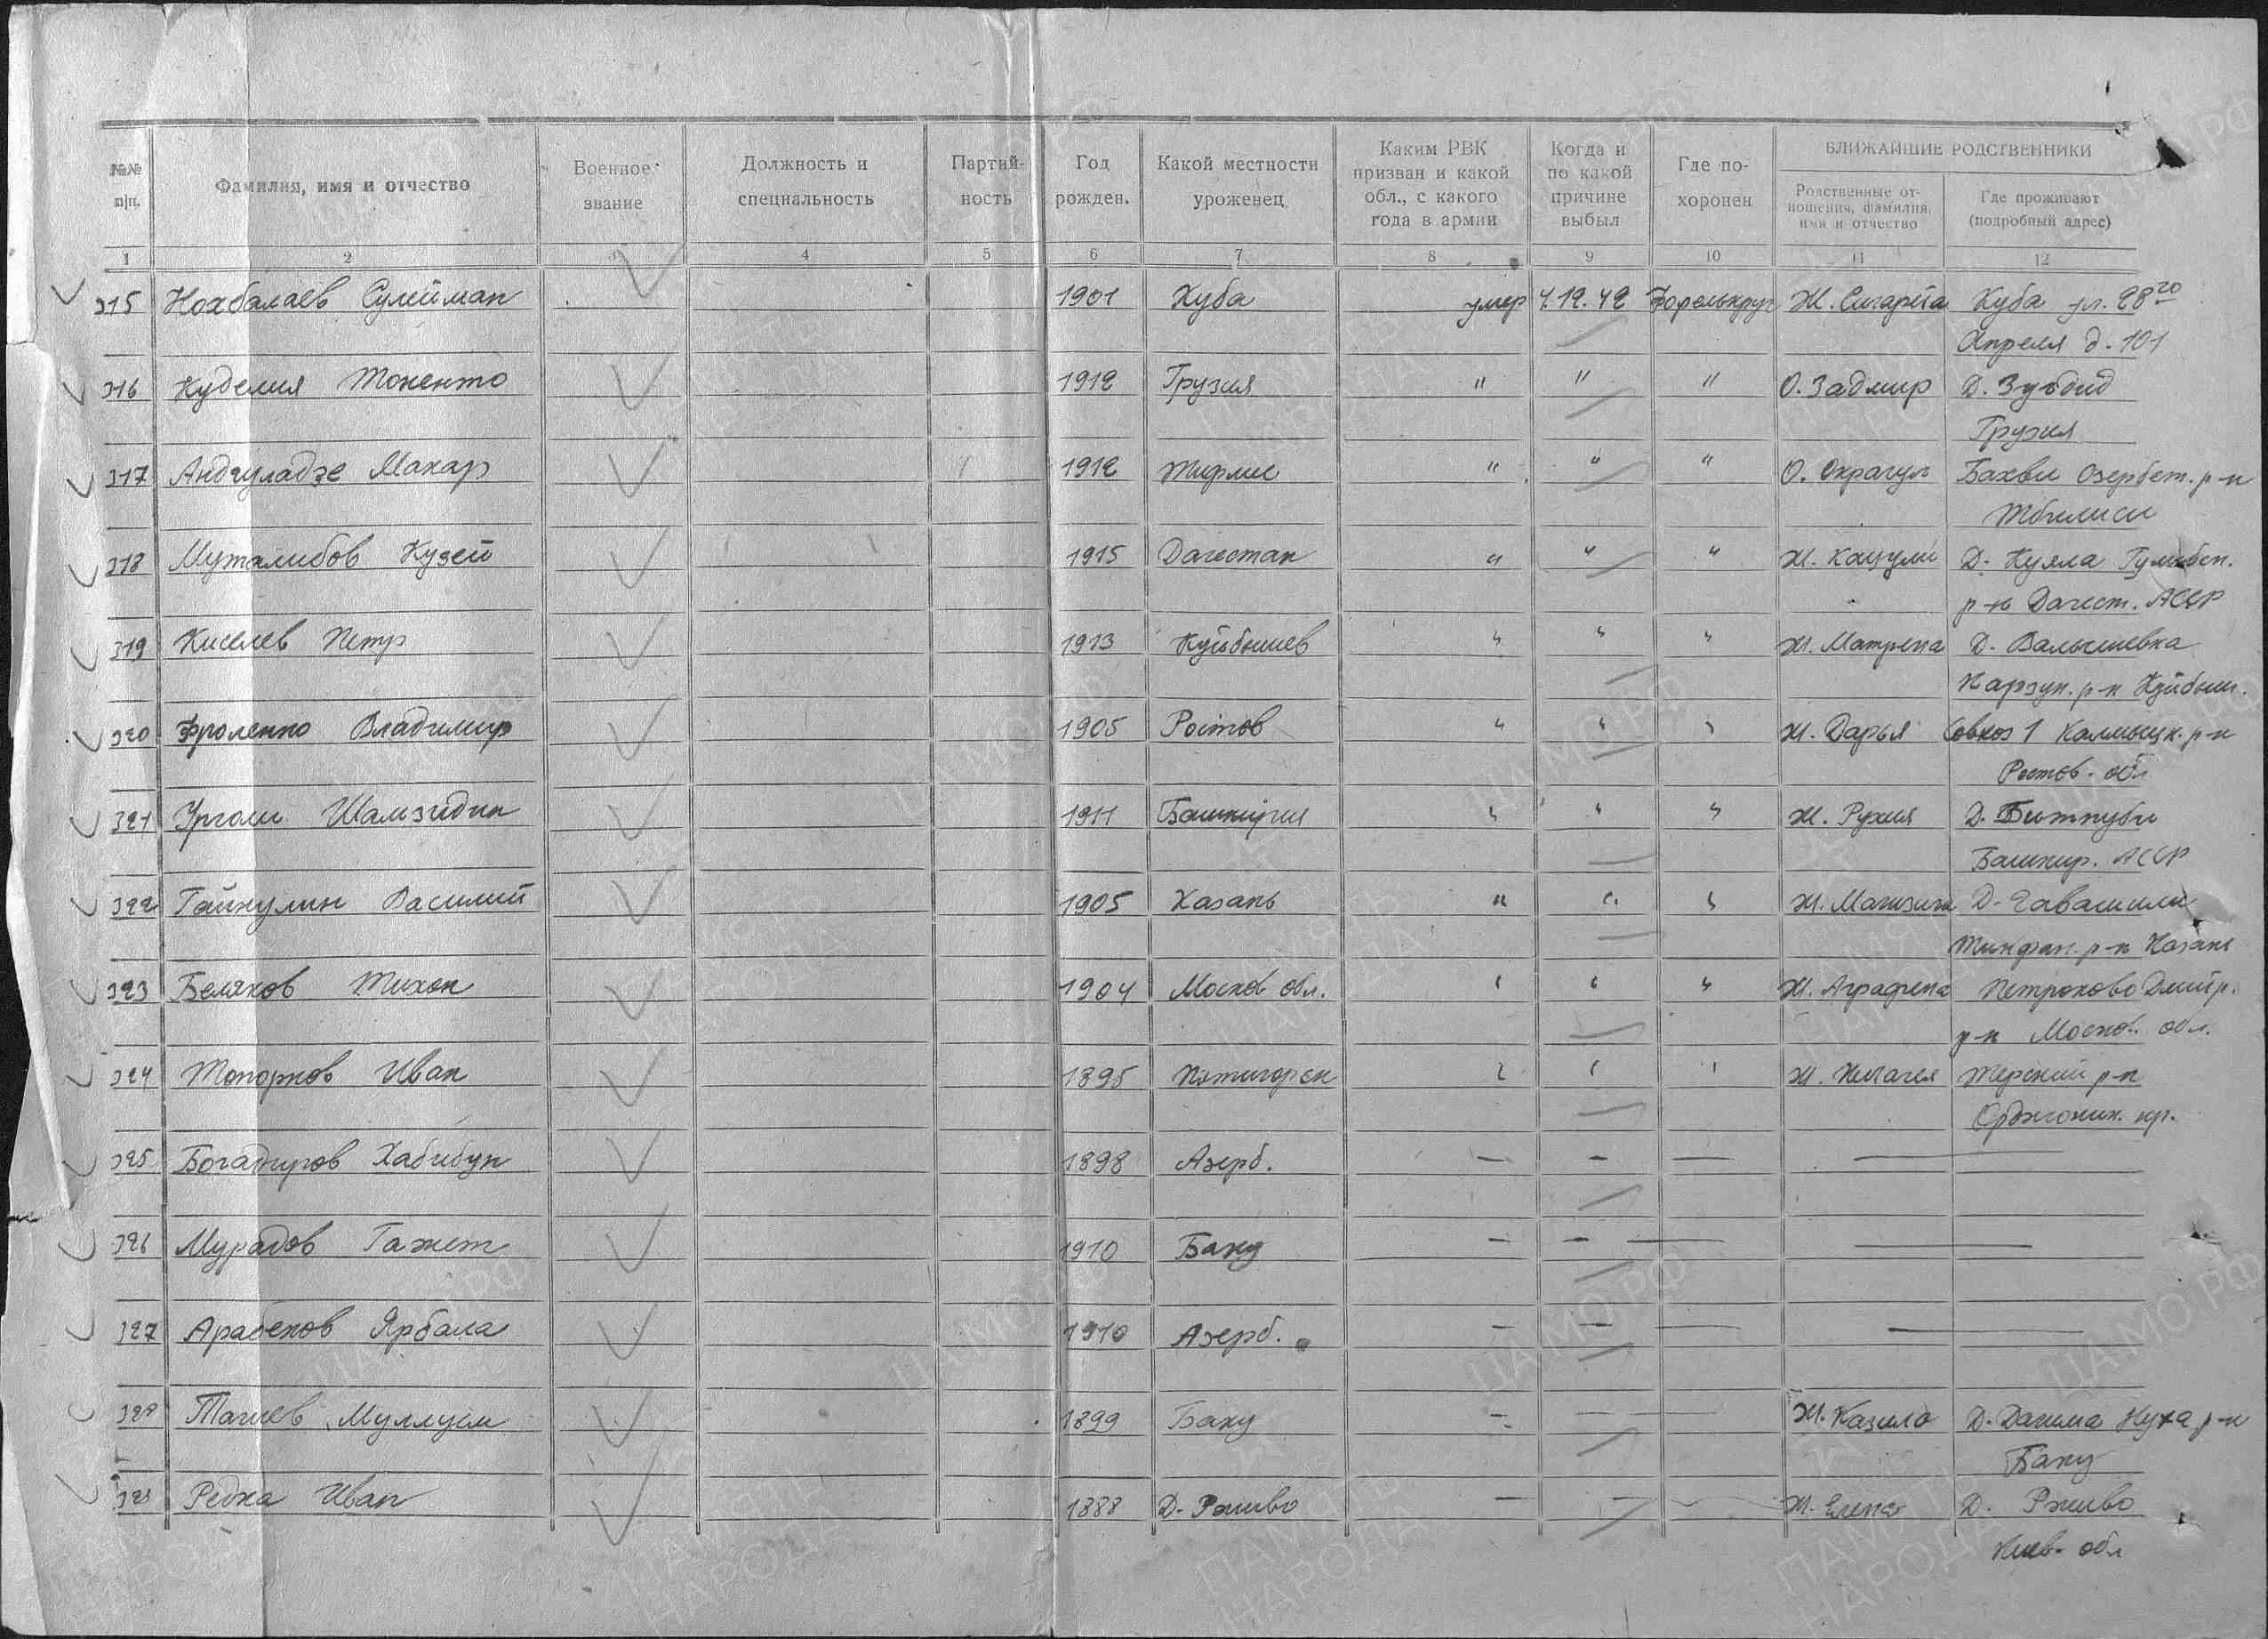 №№ п|п.
Фамилия, имя и отчество
Военное звание
Должность и специальность
Партийность
Год рожден.
Какой местности уроженец
Каким РВК призван и какой обл., с какого года в армии
Когда и по какой причине выбыл
Где похоронен
БЛИЖАЙШИЕ РОДСТВЕННИКИ
Родственные отношения, фамилия, имя и отчество
Где проживают (подробный адрес)
1 2 3 4 5 6 7 8 9 10 11 12
315 Нохбалаев Сулейман 1901 Куба умер 4.12.42 Ж. Сигарета Куба ул. 28
Апреля д. 101
316 Куделия 1912 Грузия " " " О. Задмир Д. Зугдид
Грузия
317 Андгуладзе Макар 1912 " " " О. Бахви р-н
Тбилиси
318 Муталибов Кузей 1915 Дагестан " " " Ж. Д.
р-н Дагест. АССР
319 Киселев Петр 1913 Куйбышев " " " Ж. Матрена Д.
р-н Куйбыш.
320 Фроленко Владимир 1905 Ростов " " " Ж. Дарья Совхоз 1 Калмыцк. р-н
Ростов. обл
321 Шамзидин 1911 Башкирия " " " Ж. Рухия Д.
Башкир. АССР
322 Гайнулин Василий 1905 Казань " " " Ж. Д.
р-н Казань
323 Беляков Тихон 1904 Москов обл. " " " Ж. Аграфена Петраково Дмитр.
р-н Москов. обл.
324 Топорков Иван 1895 Пятигорск " " " Ж. Терский р-н
Орджоник. кр.
325 Богадиров Хабибун 1898 Азерб. — — — —
326 Мурадов Гажет 1910 Баку — — — —
327 Арабеков Ярбала 1910 Азерб. — — — —
328 Тагиев Муллуем 1899 Баку — — — Ж. Казило Д. Дагима Нуха р-н
Баку
329 Редка Иван 1888 Д. Рживо — — — Ж. Елена Д. Рживо
Киев. обл
ЦАМО.РФ
ПАМЯТЬ НАРОДА